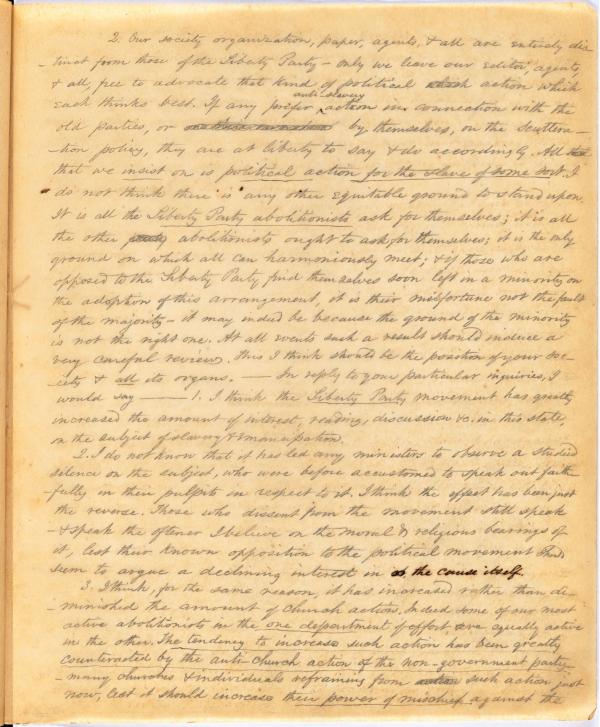 2. Our society organization, paper, agents, & all are entirely dis
-tinct from those of the Liberty Party - only we leave our editor, agents,
& all, free to advocate that kind of political action which
each thinks best. If any prefer anti slavery action in connection with the
old parties, or by themselves, on the scattera-
-tion policy, they are at liberty to say & do accordingly. All
that we insist on is political action for the slave of some sort. I
do not think there is any other equitable ground to stand upon.
It is all the Liberty Party abolitionists ask for themselves; it is all
the other abolitionists ought to ask for themselves; it is the only
ground on which all can harmoniously meet; & if those who are
opposed to the Liberty Party find themselves soon left in a minority on
the adoption of this arrangement, it is their misfortune not the fault
of the majority - it may indeed be because the ground of the minority
is not the right one. At all events such a result should induce a
very careful review. This I think should be the position of your soc-
-iety & all its organs. — In reply to your particular inquiries, I
would say — 1. I think the Liberty Party movement has greatly
increased the amount of interest, reading, discussion &c. in this state,
on the subject of slavery & emancipation.
2. I do not know that it has led any ministers to observe a studied
silence on the subject, who were before accustomed to speak out faith-
-fully in their pulpits in respect to it. I think the effect has been just
the reverse. Those who dissent from the movement still speak
- & speak the oftener I believe on the moral & religious bearings of
it, lest their known opposition to the political movement should
seem to argue a declining interest in the cause itself.
3. I think, for the same reason, it has increased rather than di-
-minished the amount of church action. Indeed some of our most
active abolitionists in the one department of effort are equally active
in the other. The tendency to increase such action has been greatly
counteracted by the anti-church action of the non-government party -
- many churches & individuals refraining from such action just
now, lest it should increase their power of mischief against the